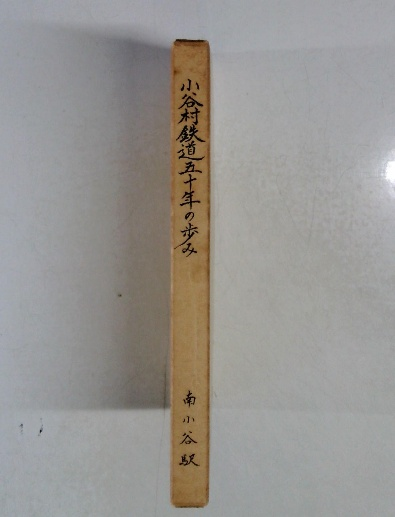 小谷村鉄道五十年の歩み
南小谷駅